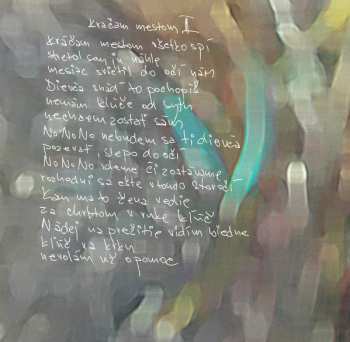 Kráčam mestom I
Kráčam mestom všetko spí
stretol som ju náhle
mesiac svietil do očí nám
Dievča snáď to pochopíš
nemám kľúče od
nechcem zostať sám
No No No nebudem sa ti dievča
pozerať slepo do očí
No No No ideme či zostaneme
rozhodni sa ešte v tomto storočí
Kam ma to žena vedie
za chrbtom v ruke kľúč
Nádej na prežitie vidím biedne
kľúč na krku
nevolám už o pomoc